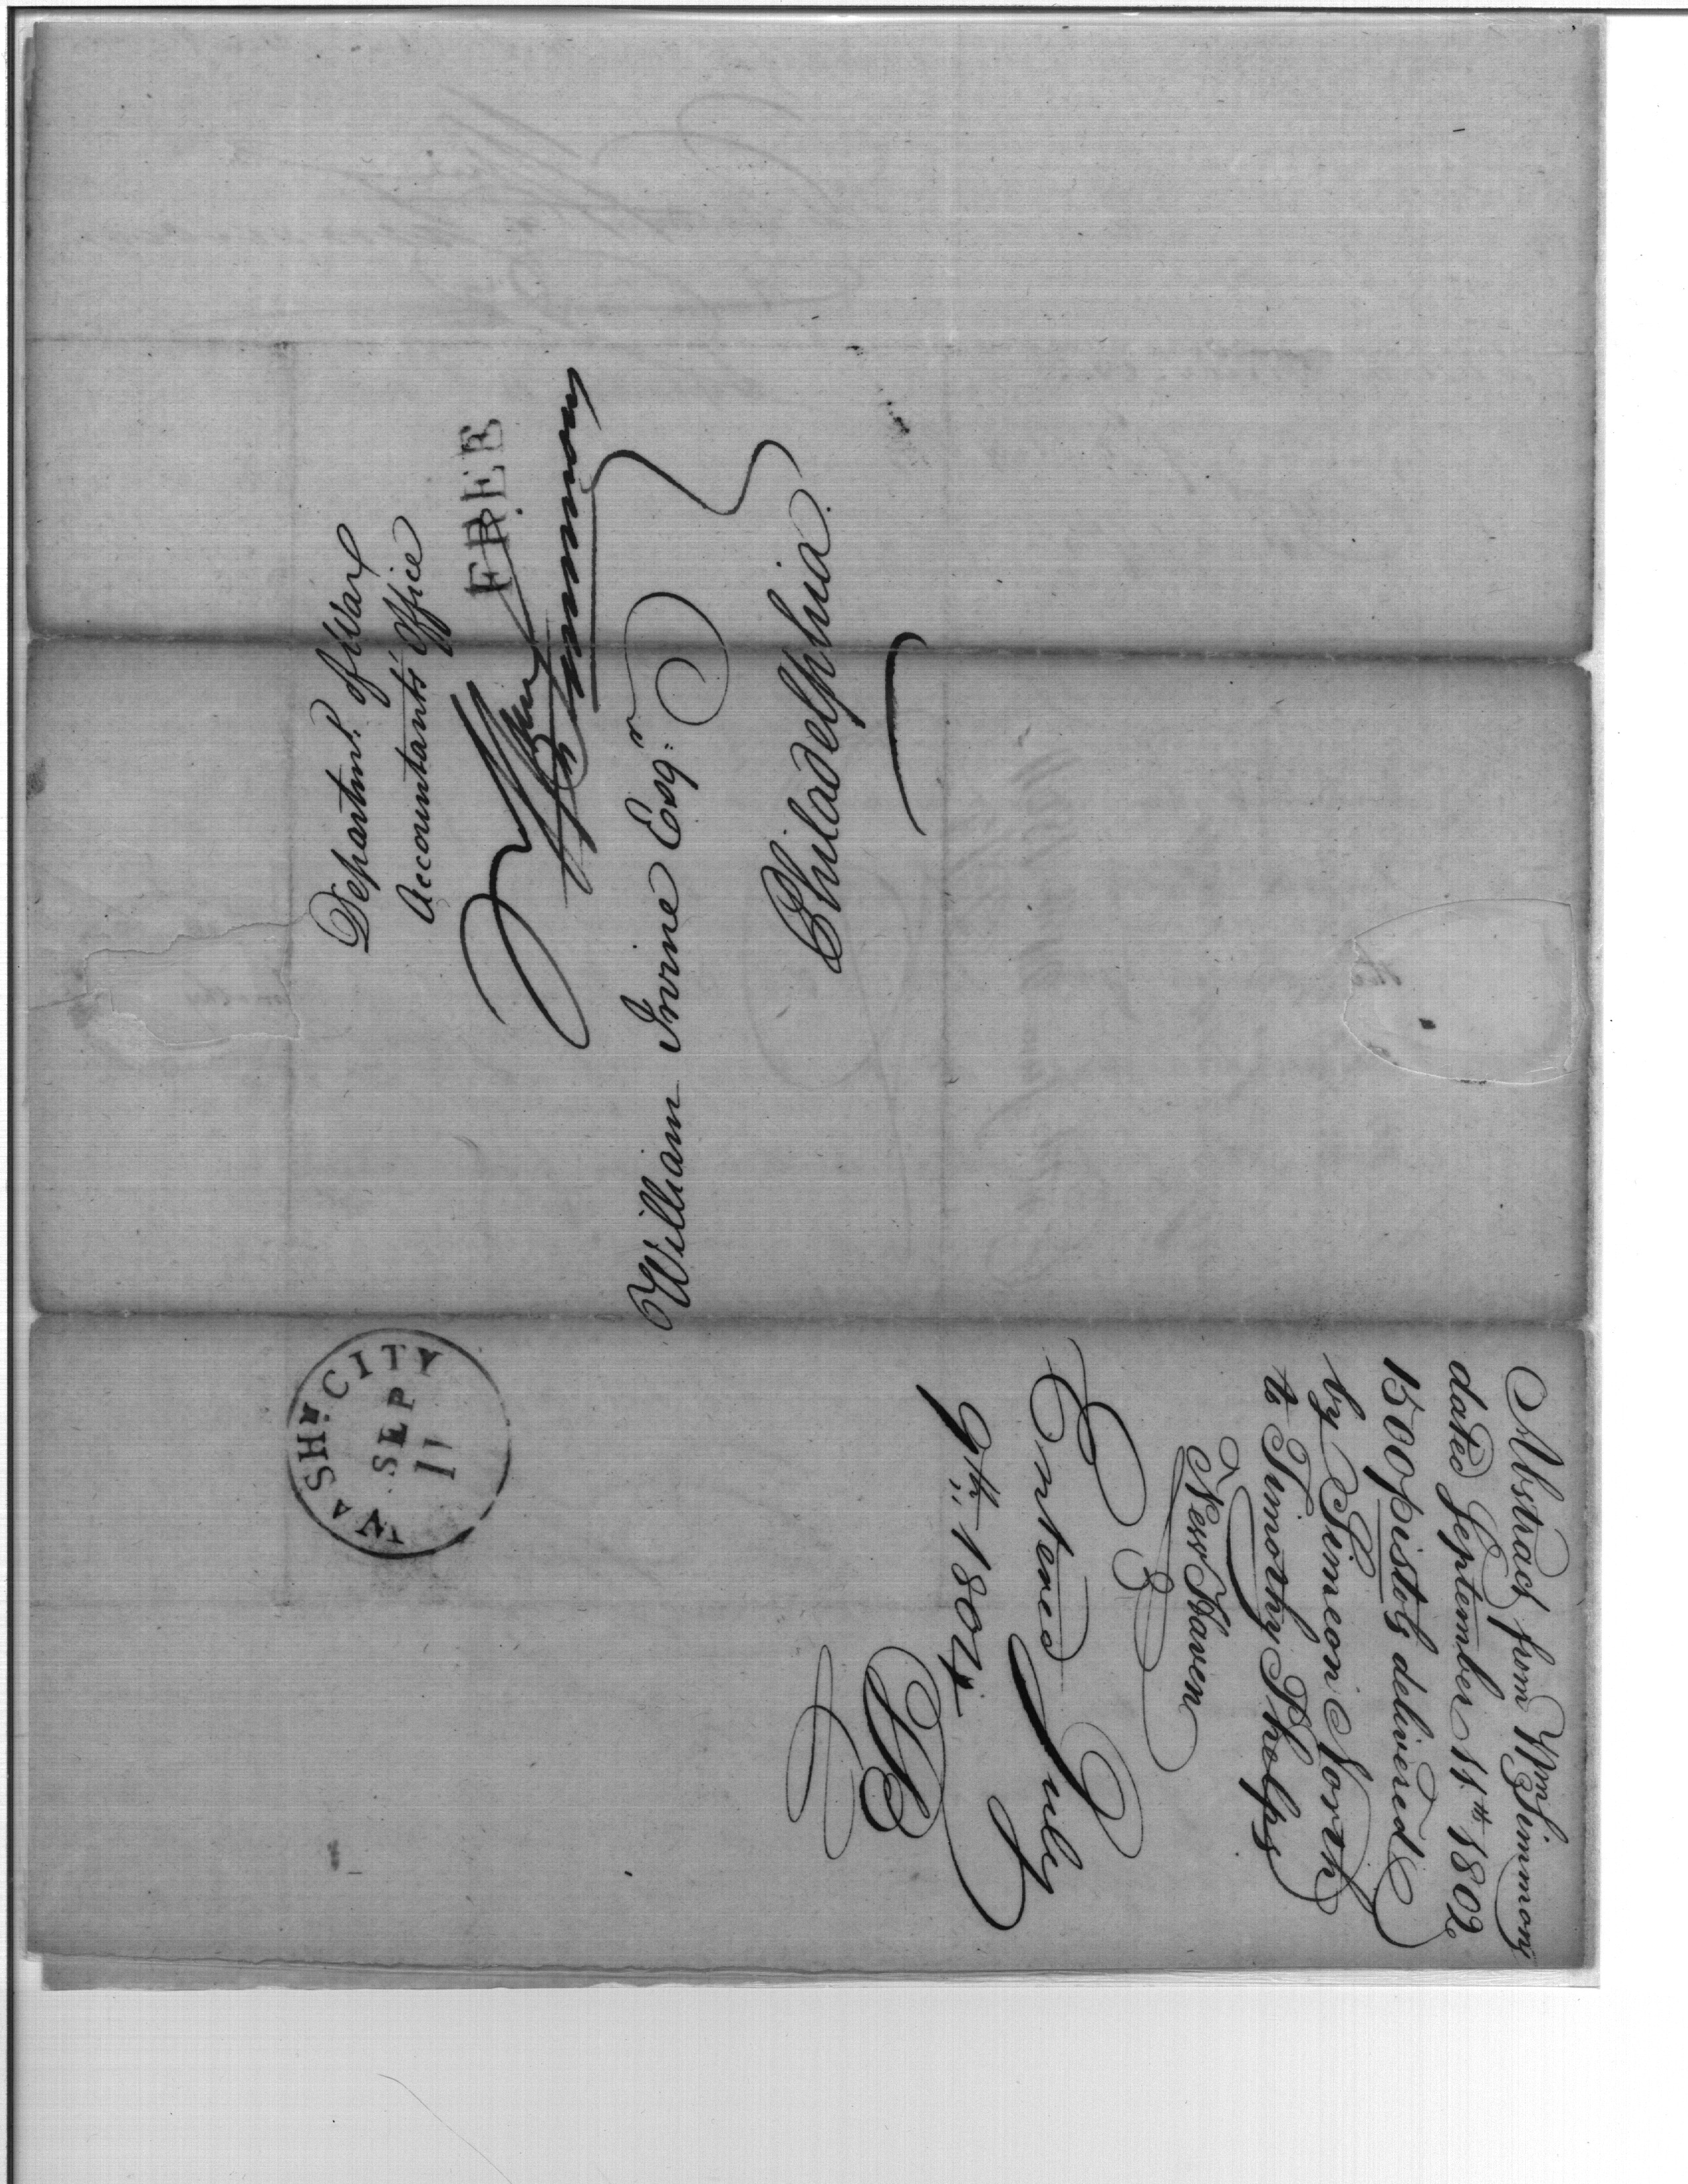 Departmt. of War
Accountants Office
FREE
Wm Simmons
William Irvine Esqr.
Philadelphia
WASHN. CITY
SEP
11
Abstract from Wm Simmons
dated September 11th 1802
1500 pistols delivered
by Simeon North
to Timothy Phelps
New Haven
Entered July
9th 1804